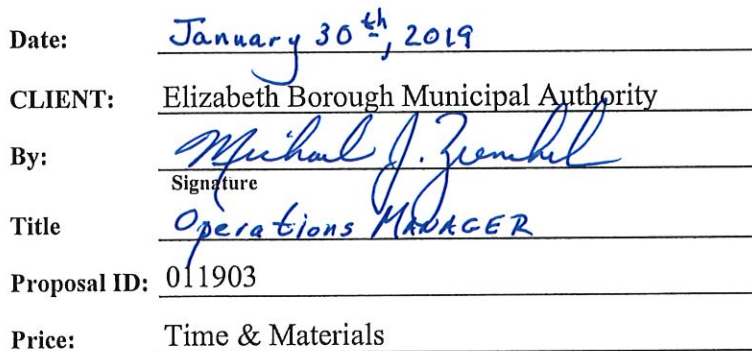 Date: January 30th, 2019
CLIENT: Elizabeth Borough Municipal Authority
By: Michael J.
Signature
Title Operations MANAGER
Proposal ID: 011903
Price: Time & Materials